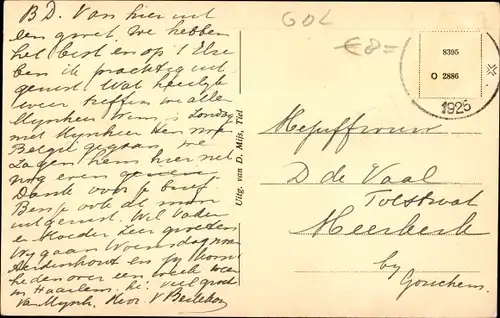 B D. Van hier uit
een groet. We hebben
het best en op! Else
ben ik prachtig uit
gerust. Wat heerlijk
weer treffen we allen
Mijnheer Wim is Zondag
met Mijnheer naar
België gegaan, we
zagen hem hier net
nog even
Dank voor je brief.
Ben je ook al mooi
uitgerust. Wil Vader
en Moeder zeer groeten
Wij gaan Woensdag naar
Aerdenhout en
heden over een week weer
in Haarlem. veel groet
van Mijnh. Mevr. V
Uitg. van D. Mijs, Tiel
GDL
8395
O 2886
1926
Mejuffrouw
D de Vaal
Tolstraat
Meerkerk
by
Gorichem.